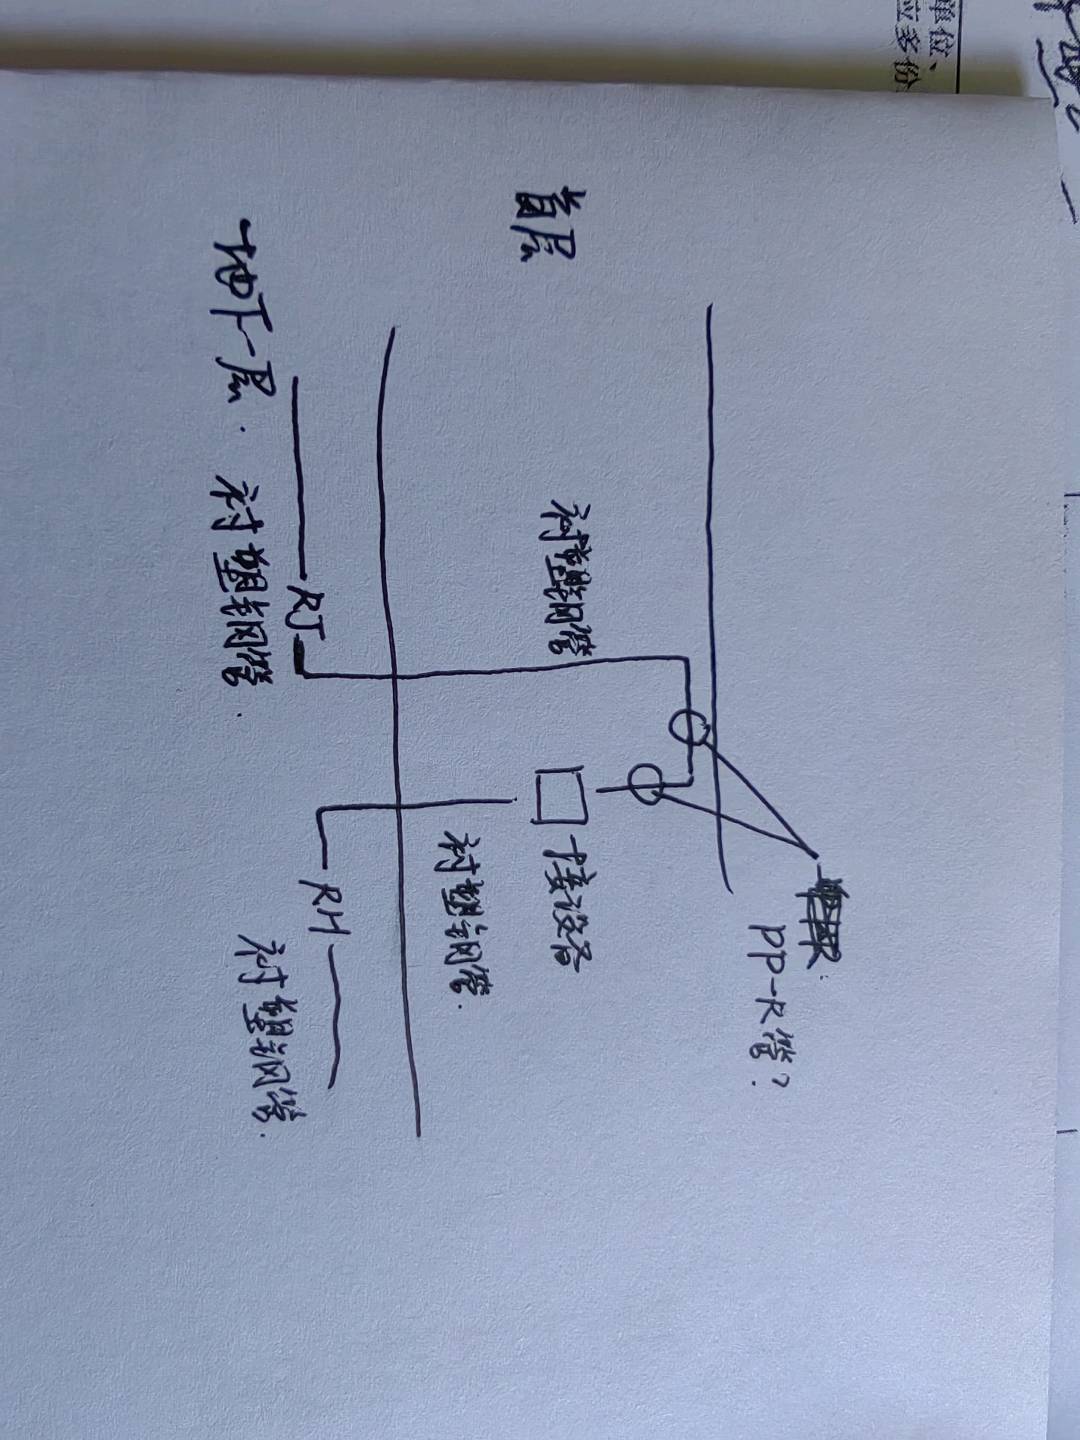 单位、
应多份
首层
PP-R管?
衬塑钢管
接设备
衬塑钢管.
地下一层. 衬塑钢管.
RJ
RH
衬塑钢管.